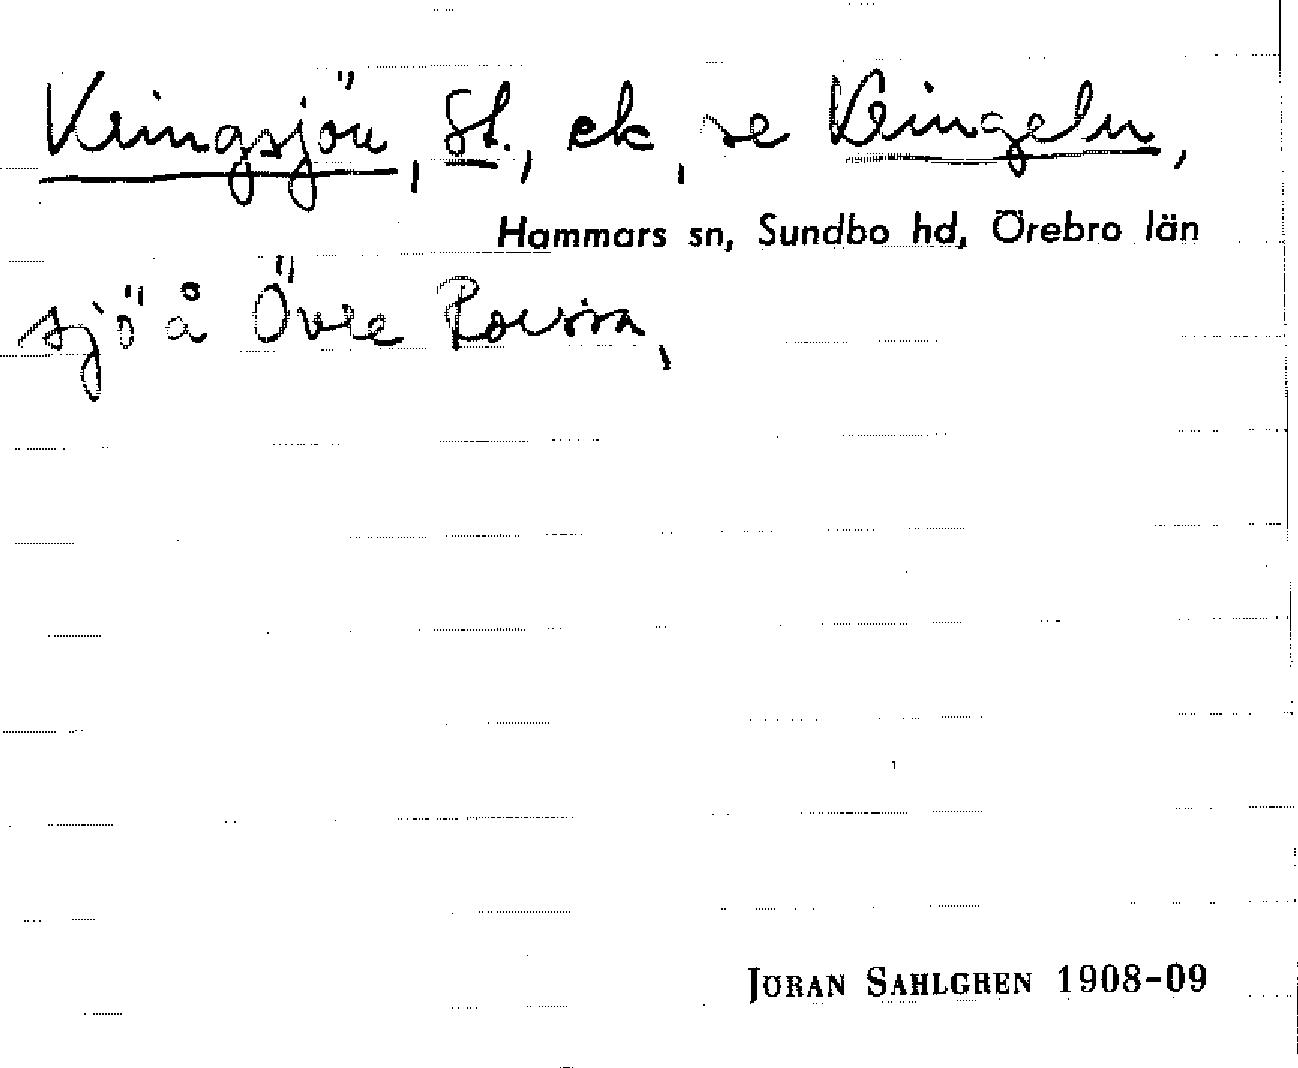 Kringsjön, St., ek, se Kringeln,
Hammars sn, Sundbo hd, Örebro län
sjö å Övre
JÖRAN SAHLGREN 1908-09